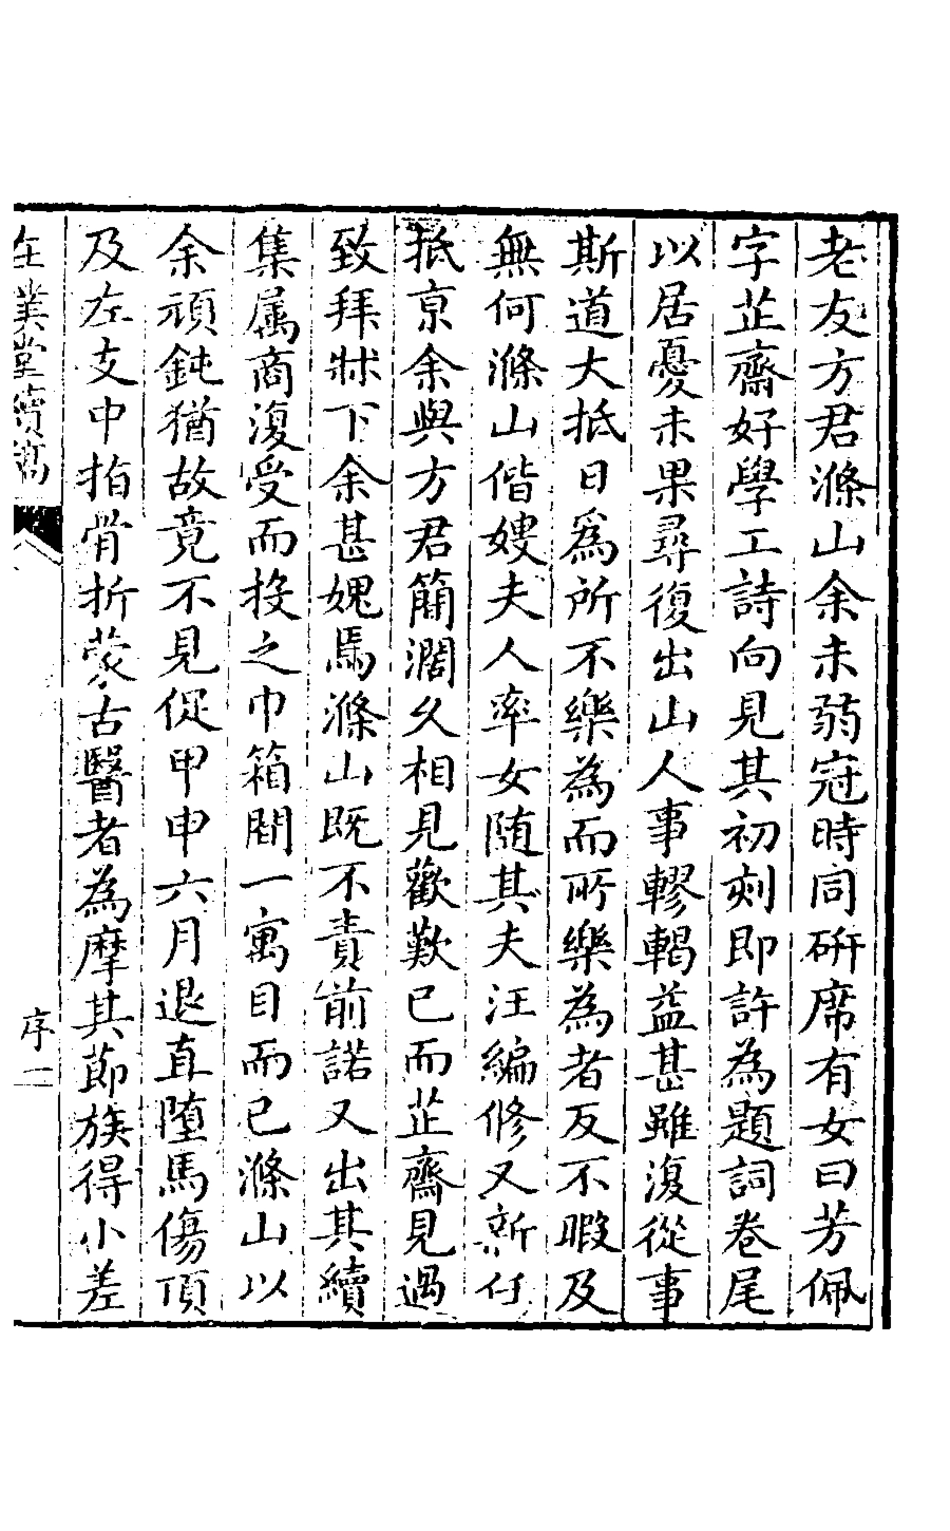 老友方君滌山余未弱冠時同硏席有女曰芳佩
字芷齋好學工詩向見其初刻即許為題詞卷尾
以居憂未果尋復出山人事轇轕益甚雖復從事
斯道大抵日為所不樂為而所樂為者反不暇及
無何滌山偕嫂夫人率女随其夫汪編修又新行
抵京余與方君簡濶久相見歡歎已而芷齋見過
致拜牀下余甚媿焉滌山既不責前諾又出其續
集属商復受而投之巾箱間一寓目而已滌山以
余頑鈍猶故竟不見促甲申六月退直墮馬傷頂
及左支中拍骨折蒙古醫者為摩其節族得小差
在璞堂續稿
序二